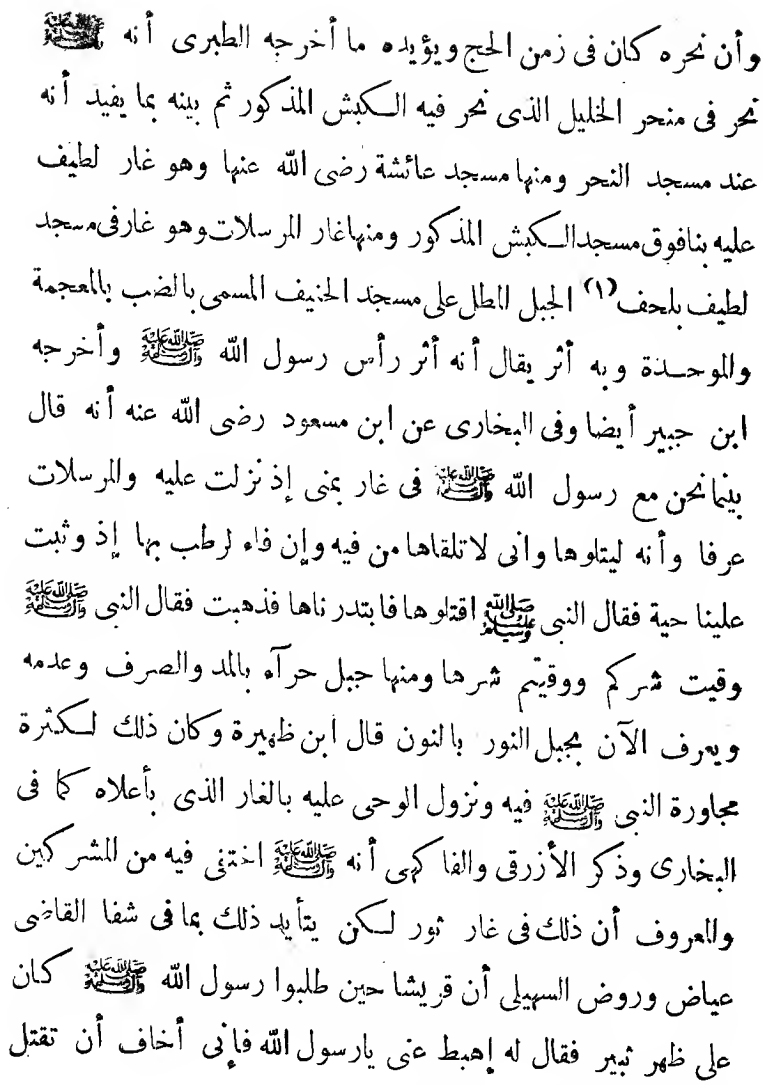 وأن نحره كان فى زمن الحج ويؤيده ما أخرجه الطبرى أنه ﷺ
نحر فى منحر الخليل الذى نحر فيه الكبش المذكور ثم بينه بما يفيد أنه
عند مسجد النحر ومنها مسجد عائشة رضى الله عنها وهو غار لطيف
عليه بنا فوق مسجد الكبش المذكور ومنها غار المرسلات وهو غار فى مسجد
لطيف بلحف (١) الجبل المطل على مسجد الخنيف المسمى بالضب بالمعجمة
والموحدة وبه أثر يقال أنه أثر رأس رسول الله ﷺ وأخرجه
ابن جبير أيضا وفى البخارى عن ابن مسعود رضى الله عنه أنه قال
بينما نحن مع رسول الله ﷺ فى غار بمنى إذ نزلت عليه والمرسلات
عرفا وأنه ليتلوها وانى لاتلقاها من فيه وإن فاه لرطب بها إذ وثبت
علينا حية فقال النبى ﷺ اقتلوها فابتدرناها فذهبت فقال النبى ﷺ
وقيت شركم ووقيتم شرها ومنها جبل حرآء بالمد والصرف وعدمه
ويعرف الآن بجبل النور بالنون قال ابن ظهيرة وكان ذلك لكثرة
مجاورة النبى ﷺ فيه ونزول الوحى عليه بالغار الذى بأعلاه كما فى
البخارى وذكر الأزرقى والفاكهى أنه ﷺ اختفى فيه من المشركين
والمعروف أن ذلك فى غار ثور لكن يتأيد ذلك بما فى شفا القاضى
عياض وروض السهيلى أن قريشا حين طلبوا رسول الله ﷺ كان
على ظهر ثبير فقال له إهبط عنى يارسول الله فإنى أخاف أن تقتل